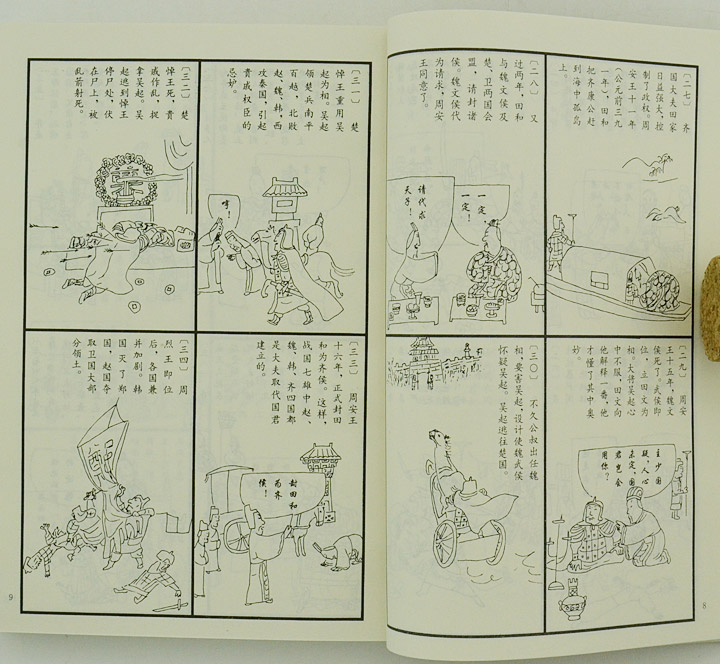 〔二七〕 齐
国大夫田家
日益强大,控
制了政权。周
安王十一年
(公元前三九
一年),田和
把齐康公赶
到海中孤岛
上。
〔二八〕 又
过两年,田和
与魏文侯及
楚、卫两国会
盟,请封诸
侯。魏文侯代
为请求,周安
王同意了。
一定!
一定!
请代求
天子!
〔二九〕 周安
王十五年,魏文
侯死了,武侯即
位,立田文为
相。大将吴起心
中不服,田文向
他解释一番,他
才懂了其中奥
妙。
主少国
疑,人心
未定,国
君岂会
用你?
〔三〇〕 不久公叔出任魏
相,要害吴起,设计使魏武侯
怀疑吴起。吴起逃往楚国。
8
〔三一〕 楚
悼王重用吴
起为相。吴起
领楚兵南平
百越,北败
赵、魏、韩,西
攻秦国,引起
贵戚权臣的
忌妒。
哼!
〔三二〕 楚
悼王死,贵
戚作乱,捉
拿吴起。吴
起逃到悼王
停尸处,伏
在尸上,被
乱箭射死。
奠
〔三三〕 周安王
十六年,正式封田
和为齐侯。这样,
战国七雄中赵、
魏、韩、齐四国都
是大夫取代国君
建立的。
封田和
为齐
侯!
〔三四〕 周
烈王即位
后,各国兼
并加剧。韩
国灭了郑
国,赵国夺
取卫国大部
分领土。
9